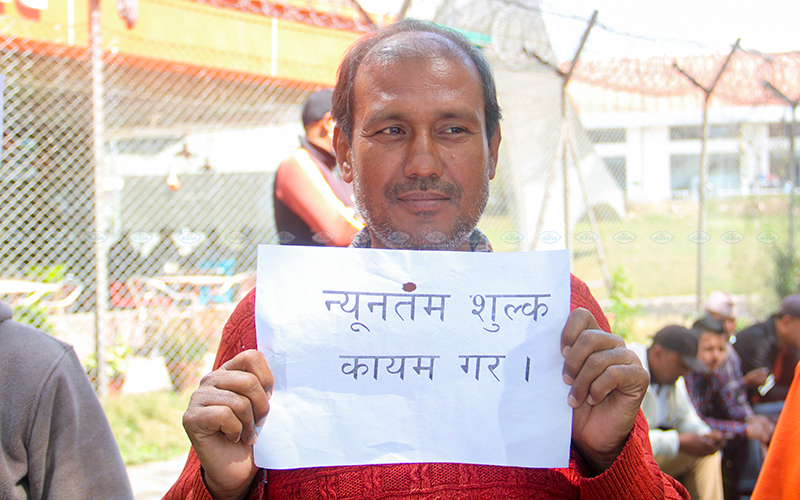 न्यूनतंम शुल्क
कायम गर ।